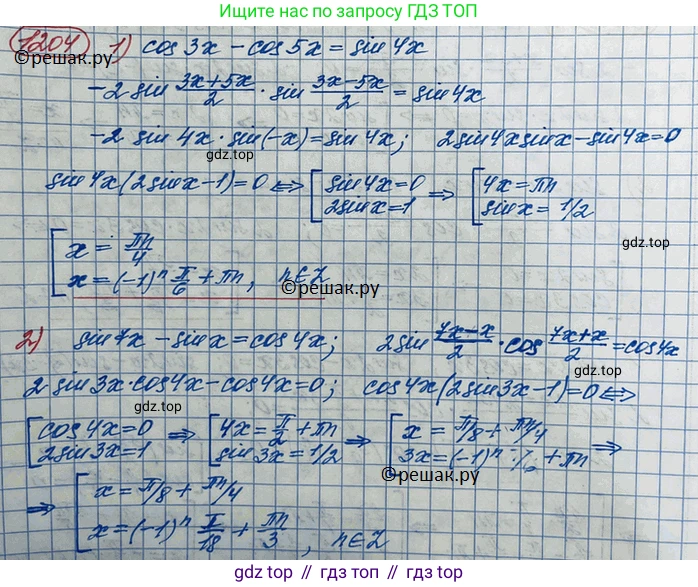 Ищите нас по запросу ГДЗ ТОП
1204 1) cos 3x - cos 5x = sin 4x
©решак.ру
-2 sin (3x+5x)/2 · sin (3x-5x)/2 = sin 4x
-2 sin 4x · sin(-x) = sin 4x; 2 sin 4x sin x - sin 4x = 0
гдз топ
sin 4x (2 sin x - 1) = 0 ⟺ [ sin 4x = 0 2 sin x = 1 ⇒ [ 4x = πn sin x = 1/2
гдз топ
[ x = πn/4
x = (-1)ⁿ π/6 + πn, n∈Z
©решак.ру
2) sin 7x - sin x = cos 4x; 2 sin (7x-x)/2 · cos (7x+x)/2 = cos 4x
2 sin 3x · cos 4x - cos 4x = 0; cos 4x (2 sin 3x - 1) = 0 ⟺
гдз топ
[ cos 4x = 0 2 sin 3x = 1 ⇒ [ 4x = π/2 + πn sin 3x = 1/2 ⇒ [ x = π/8 + πn/4 3x = (-1)ⁿ · π/6 + πn ⇒
©решак.ру
⇒ [ x = π/8 + πn/4
x = (-1)ⁿ π/18 + πn/3, n∈Z
©решак.ру
гдз топ // гдз топ // гдз топ // гдз топ